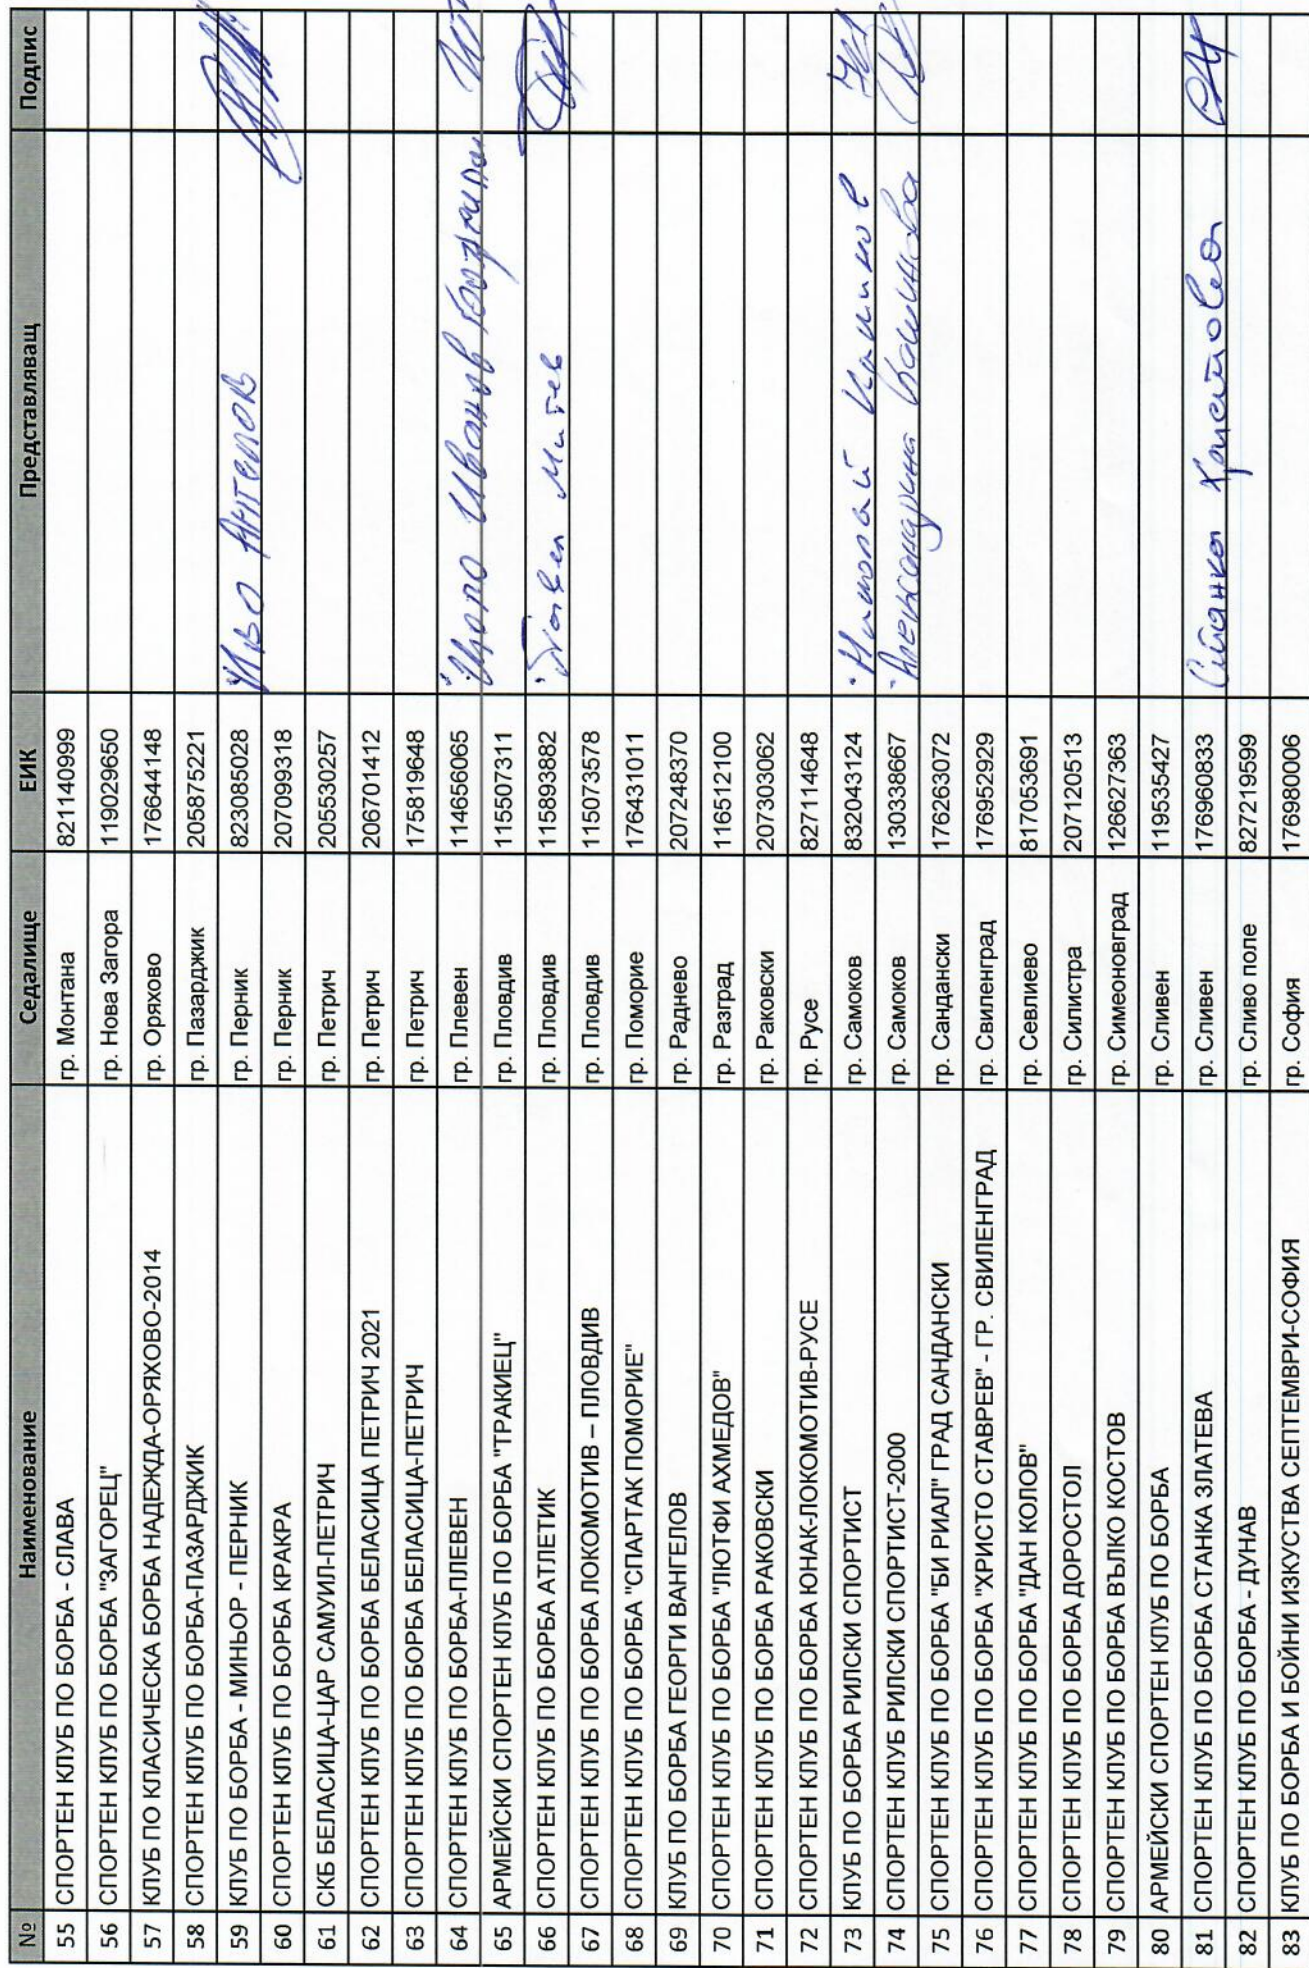 № Наименование Седалище ЕИК Представляващ Подпис
55 СПОРТЕН КЛУБ ПО БОРБА - СЛАВА гр. Монтана 821140999
56 СПОРТЕН КЛУБ ПО БОРБА "ЗАГОРЕЦ" гр. Нова Загора 119029650
57 КЛУБ ПО КЛАСИЧЕСКА БОРБА НАДЕЖДА-ОРЯХОВО-2014 гр. Оряхово 176644148
58 СПОРТЕН КЛУБ ПО БОРБА-ПАЗАРДЖИК гр. Пазарджик 205875221
59 КЛУБ ПО БОРБА - МИНЬОР - ПЕРНИК гр. Перник 823085028 Иво Ангелов
60 СПОРТЕН КЛУБ ПО БОРБА КРАКРА гр. Перник 207099318
61 СКБ БЕЛАСИЦА-ЦАР САМУИЛ-ПЕТРИЧ гр. Петрич 205530257
62 СПОРТЕН КЛУБ ПО БОРБА БЕЛАСИЦА ПЕТРИЧ 2021 гр. Петрич 206701412
63 СПОРТЕН КЛУБ ПО БОРБА БЕЛАСИЦА-ПЕТРИЧ гр. Петрич 175819648
64 СПОРТЕН КЛУБ ПО БОРБА-ПЛЕВЕН гр. Плевен 114656065 Иванов
65 АРМЕЙСКИ СПОРТЕН КЛУБ ПО БОРБА "ТРАКИЕЦ" гр. Пловдив 115507311
66 СПОРТЕН КЛУБ ПО БОРБА АТЛЕТИК гр. Пловдив 115893882 Павел Митев
67 СПОРТЕН КЛУБ ПО БОРБА ЛОКОМОТИВ – ПЛОВДИВ гр. Пловдив 115073578
68 СПОРТЕН КЛУБ ПО БОРБА "СПАРТАК ПОМОРИЕ" гр. Поморие 176431011
69 КЛУБ ПО БОРБА ГЕОРГИ ВАНГЕЛОВ гр. Раднево 207248370
70 СПОРТЕН КЛУБ ПО БОРБА "ЛЮТФИ АХМЕДОВ" гр. Разград 116512100
71 СПОРТЕН КЛУБ ПО БОРБА РАКОВСКИ гр. Раковски 207303062
72 СПОРТЕН КЛУБ ПО БОРБА ЮНАК-ЛОКОМОТИВ-РУСЕ гр. Русе 827114648
73 КЛУБ ПО БОРБА РИЛСКИ СПОРТИСТ гр. Самоков 832043124 Николай
74 СПОРТЕН КЛУБ РИЛСКИ СПОРТИСТ-2000 гр. Самоков 130338667 Александрина
75 СПОРТЕН КЛУБ ПО БОРБА "БИ РИАЛ" ГРАД САНДАНСКИ гр. Сандански 176263072
76 СПОРТЕН КЛУБ ПО БОРБА "ХРИСТО СТАВРЕВ" - ГР. СВИЛЕНГРАД гр. Свиленград 176952929
77 СПОРТЕН КЛУБ ПО БОРБА "ДАН КОЛОВ" гр. Севлиево 817053691
78 СПОРТЕН КЛУБ ПО БОРБА ДОРОСТОЛ гр. Силистра 207120513
79 СПОРТЕН КЛУБ ПО БОРБА ВЪЛКО КОСТОВ гр. Симеоновград 126627363
80 АРМЕЙСКИ СПОРТЕН КЛУБ ПО БОРБА гр. Сливен 119535427
81 СПОРТЕН КЛУБ ПО БОРБА СТАНКА ЗЛАТЕВА гр. Сливен 176960833 Станка Христова
82 СПОРТЕН КЛУБ ПО БОРБА - ДУНАВ гр. Сливо поле 827219599
83 КЛУБ ПО БОРБА И БОЙНИ ИЗКУСТВА СЕПТЕМВРИ-СОФИЯ гр. София 176980006